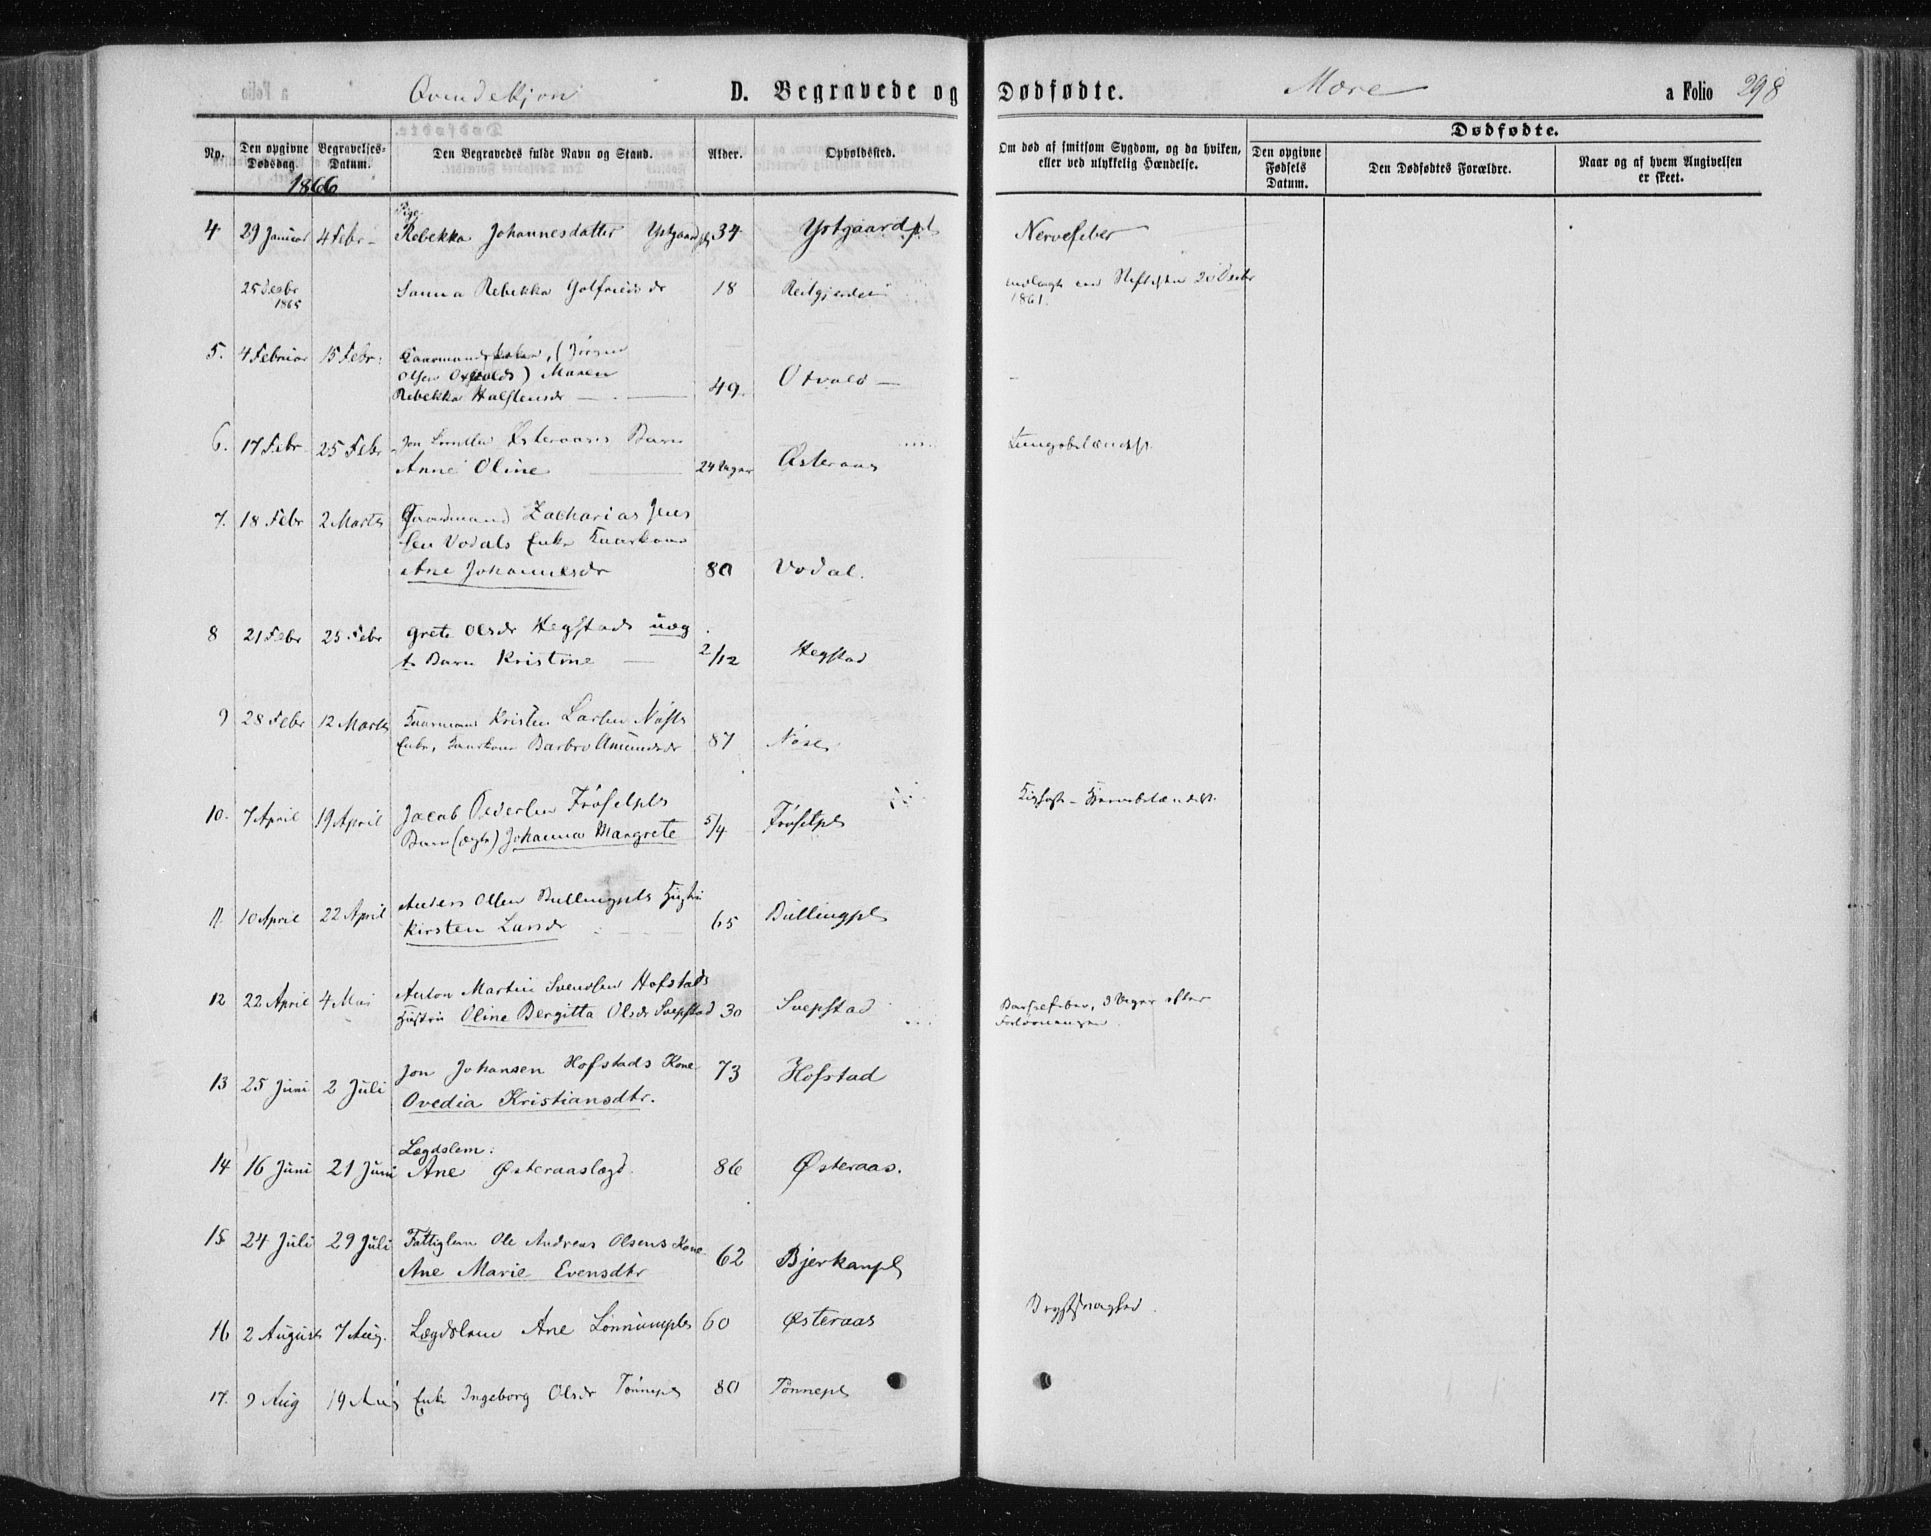 Qvindekjøn D. Begravede og Dødfødte. Mære a Folio 298
No. Den opgivne Dødsdag. Begravelses-Datum. Den Begravedes fulde Navn og Stand. Alder. Opholdssted. Om død af smitsom Sygdom, og da hviken, eller ved ulykkelig Hændelse. Dødfødte. Den opgivne Fødsels Datum. Den Dødfødtes Forældre. Naar og af hvem Angivelsen er skeet.
1866
Pige
4 29 Januar 4 Febr Rebekka Johannesdatter Ystgaardpl 34 Ystgaardpl Nervefeber
25 Decbr 1865 Sanna Rebekka dr 18 Reitgjerdet
1861.
5. 4 Februar 15 Febr. (Jörgen
Olsen ) Maren
Rebekka Halstensdr 49. Otvald
6. 17 Febr 25 Febr Jon Østeraas's Barn Lungebetændelse
Anne Oline 24 Dager Østeraas
7. 18 Febr 2 Marts Gaardmand Zacharias Jen
sen Vodals Enke Kaarkone
Ane Johannesdr 80 Vodal.
8 21 Febr 25 Febr Grete Olsdr Hegstads uæg
te Barn Kristine 2/12 Hegstad
9 28 Febr 12 Marts Kaarmand Kristen Larsen
Enke, Kaarkone Barbro Amundsdr 87
10. 7 April 19 April Jacob Pedersen Fröselpls
Barn (ægte) Johanna Margrete 5/4 Fröselpl
11. 10 April 22 April Anders Olsen Bullingpls Hustru
Kirsten Larsdr 65 Bullingpl
12 22 April 4 Mai Anton Martin Svendsen Hofstads
Hustru Oline Bergitta Olsdr Svepstad 30 Svepstad Barselfeber, 9 Dager efter
Forløsningen
13 25 Juni 2 Juli Jon Johansen Hofstads Kone 73 Hofstad
Ovedia Kristiansdtr.
Lægdslem:
14 16 Juni 21 Juni Ane Østeraaslægd. 86 Østeraas.
15 24 Juli 29 Juli Fattiglem Ole Andreas Olsens Kone
Ane Marie Evensdtr 62 Bjerkanpl
16 2 August 7 Aug. Lægdslem Ane Lönnumpls 60 Østeraas Brystsvaghed.
17. 9 Aug 19 Aug Enke Ingeborg Olsdr Tönnepl 80 Tönnepl